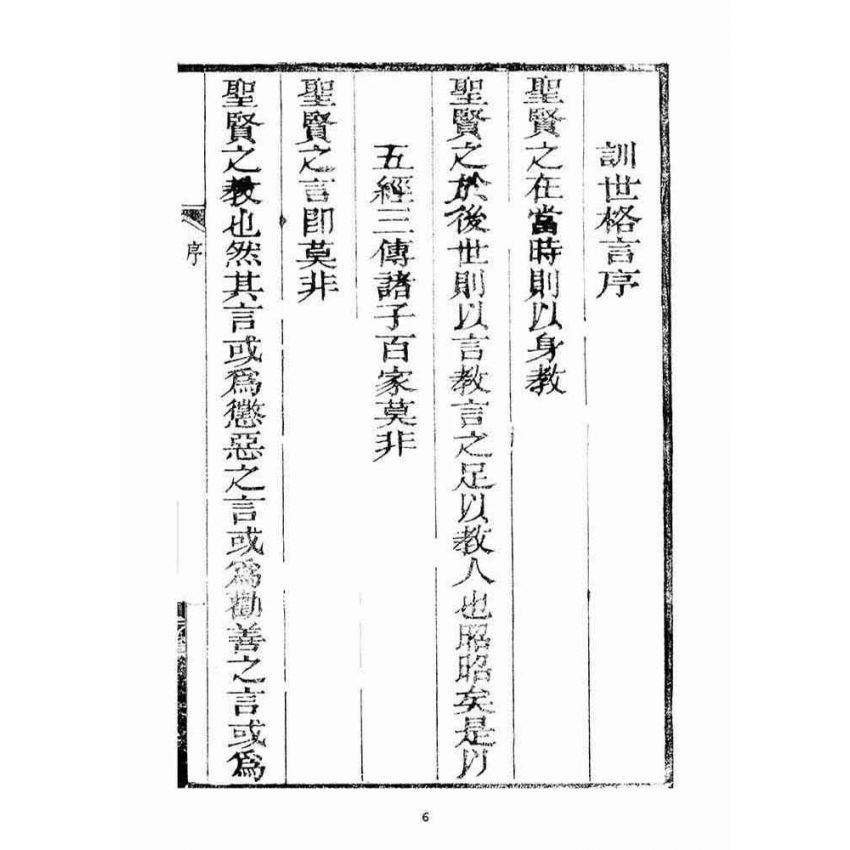 訓世格言序
聖賢之在當時則以身教
聖賢之於後世則以言教言之足以教人也昭昭矣是以
五經三傳諸子百家莫非
聖賢之言即莫非
聖賢之教也然其言或爲懲惡之言或爲勸善之言或爲
序
6